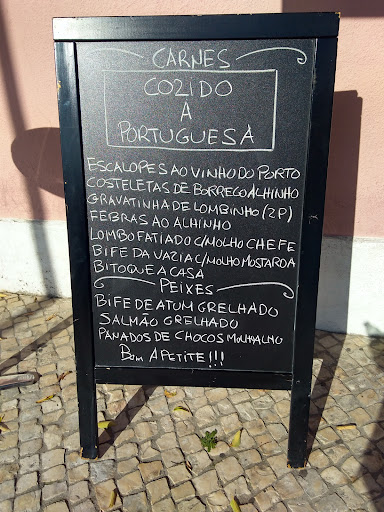 CARNES
COZIDO
A
PORTUGUESA
ESCALOPES AO VINHO DO PORTO
COSTELETAS DE BORREGO ALHINHO
GRAVATINHA DE LOMBINHO (2P)
FEBRAS AO ALHINHO
LOMBO FATIADO C/MOLHO CHEFE
BIFE DA VAZIA C/MOLHO MOSTARDA
BITOQUE A CASA
PEIXES
BIFE DE ATUM GRELHADO
SALMÃO GRELHADO
PANADOS DE CHOCOS
BOM APETITE!!!